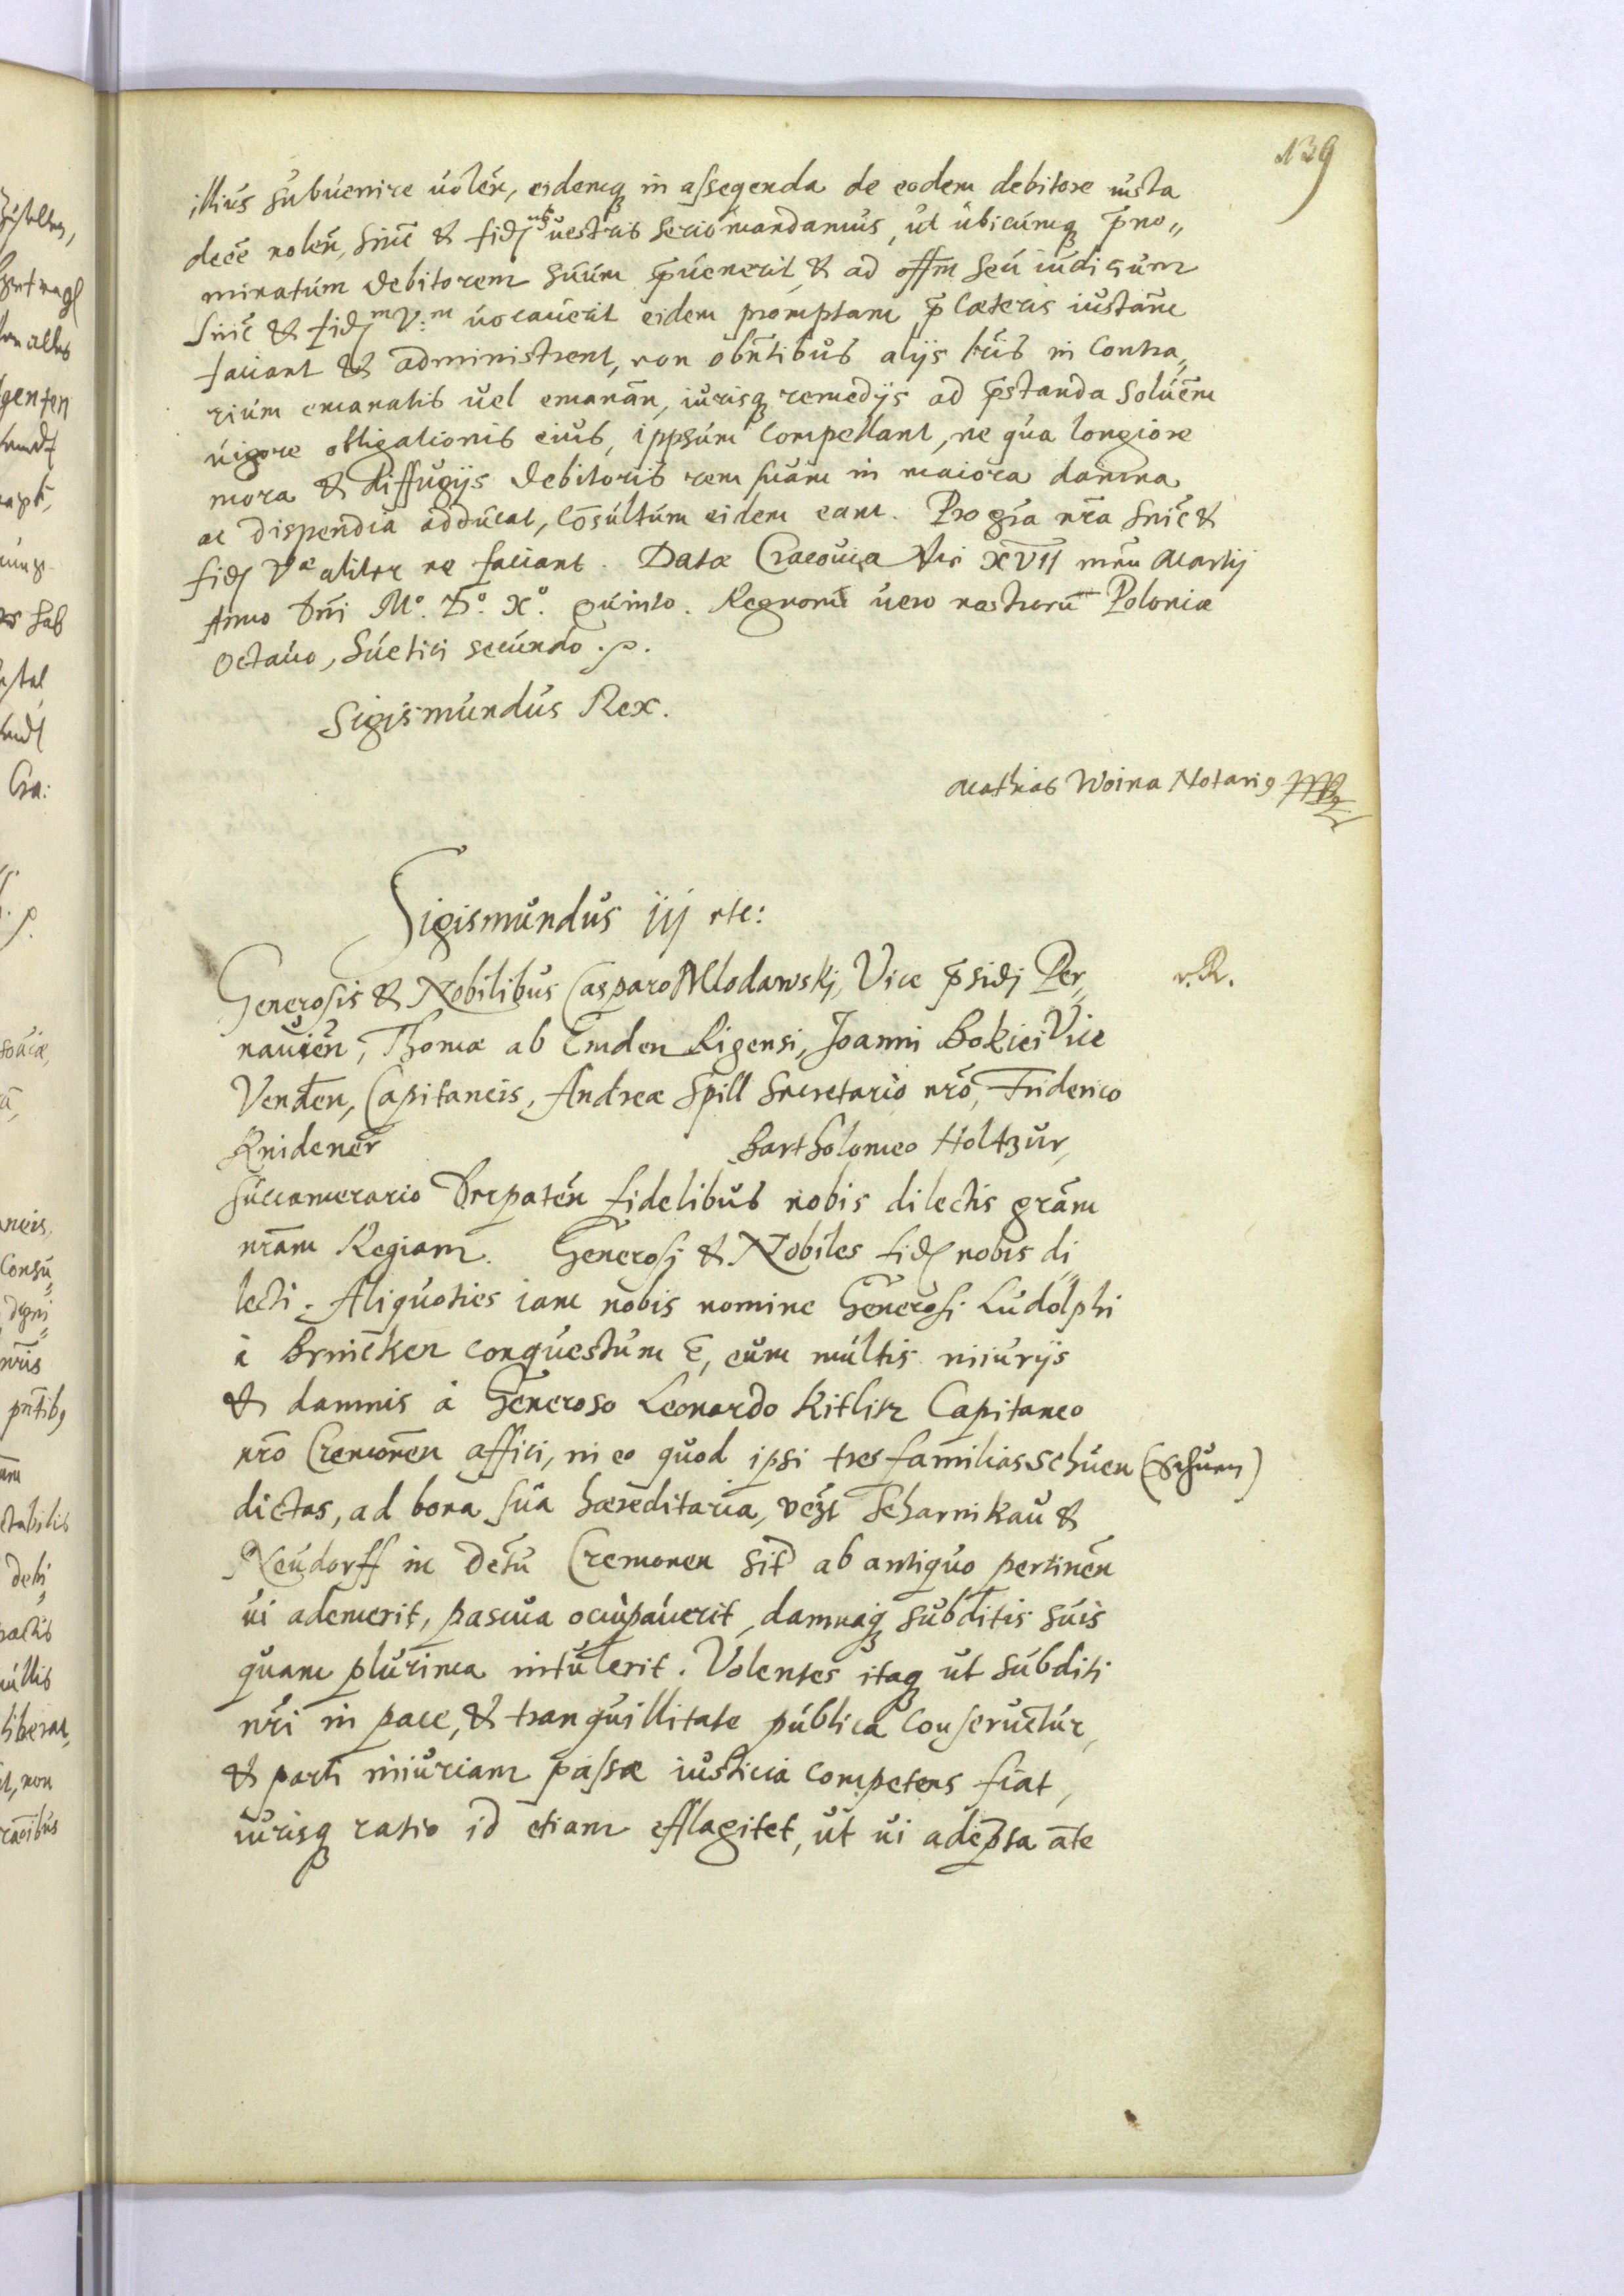 139
illius subuenire uolen̄, eidemq̃ in assequenda de eodem debitore iusta
deeē nolen̄, Sinc̃ & fid vestris serio mandamus, ut ubicumq̃ p̄no„
minatum debitorem suum p̄uenerit, & ad offm seu iudicium
Sinc̃ & fid V:m uocauerit eidem promptam p̄ caeteris iustam̄
faciant & administrent, non obn̄tibus alijs l̃ris in contra,
rium emanatis uel emanan̄, iurisq̃ remedijs ad p̄standa soluēm
uigore obligationis eius, ippsum compellant, ne qua longiore
mora & diffugijs debitoris rem suam in maiora damna
ac dispendia adducat, cōsultum eidem eant. Pro gr̄a nr̄a Sinc̃ &
fid Væ aliter ne faciant. Datæ Cracouiæ die XVII men̄ Martij
Anno Dn̄i Mº. Dº. Xº. quinto. Regnorū uero nostrorū Poloniæ
Octauo, Suetici secundo.
Sigismundus Rex.
Mathias Woina Notari9
Sigismundus iij etc:
Generosis & Nobilibus Casparo Mlodawskj, Vice p̄sidj Per,
r. R.
nauien̄, Thomæ ab Emden Rigensi, Joanni Bokiei Vice
Venden̄, Capitaneis, Andreæ Spill Secretario nr̄o, Friderico
Knidener Bartholomeo Holtzur,
Succamerario Derpaten̄ fidelibus nobis dilectis gram̄
nr̄am Regiam. Generosj & Nobiles fid nobis di„
lecti. Aliquoties iam nobis nomine Generosi Ludolphi
à Brincken conquestum ē, eum multis iniurijs
& damnis à Generoso Leonardo Kitlitz Capitaneo
nr̄o Cremonen̄ affici, in eo quod ipsi tres familias schuen (Schuen)
dictas, ad bona sua hæreditaria, vēzt Scharnikau &
Neudorff in Dētu Cremonen sit̄ ab antiquo pertinen̄
ui ademerit, pascua occupauerit, damnaq̃ subditis suis
quam plurima intulerit. Volentes itaq̃ ut subditi
nr̄i in pace, & tranquillitate publica conseruētur,
& parti iniuriam passæ iusticia competens fiat,
iurisq̃ ratio id etiam efflagitet, ut ui adēpta āte